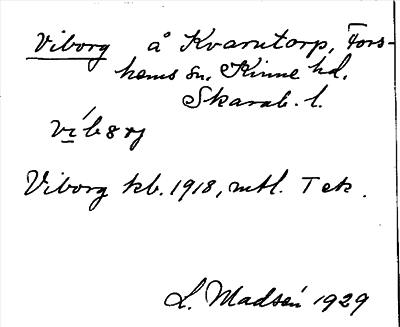 Viborg å Kvarntorp, Fors-
hems sn. Kinne hd.
Skarab. l.
Viborg kb. 1918, mtl. T ek.
L. Madsén 1929